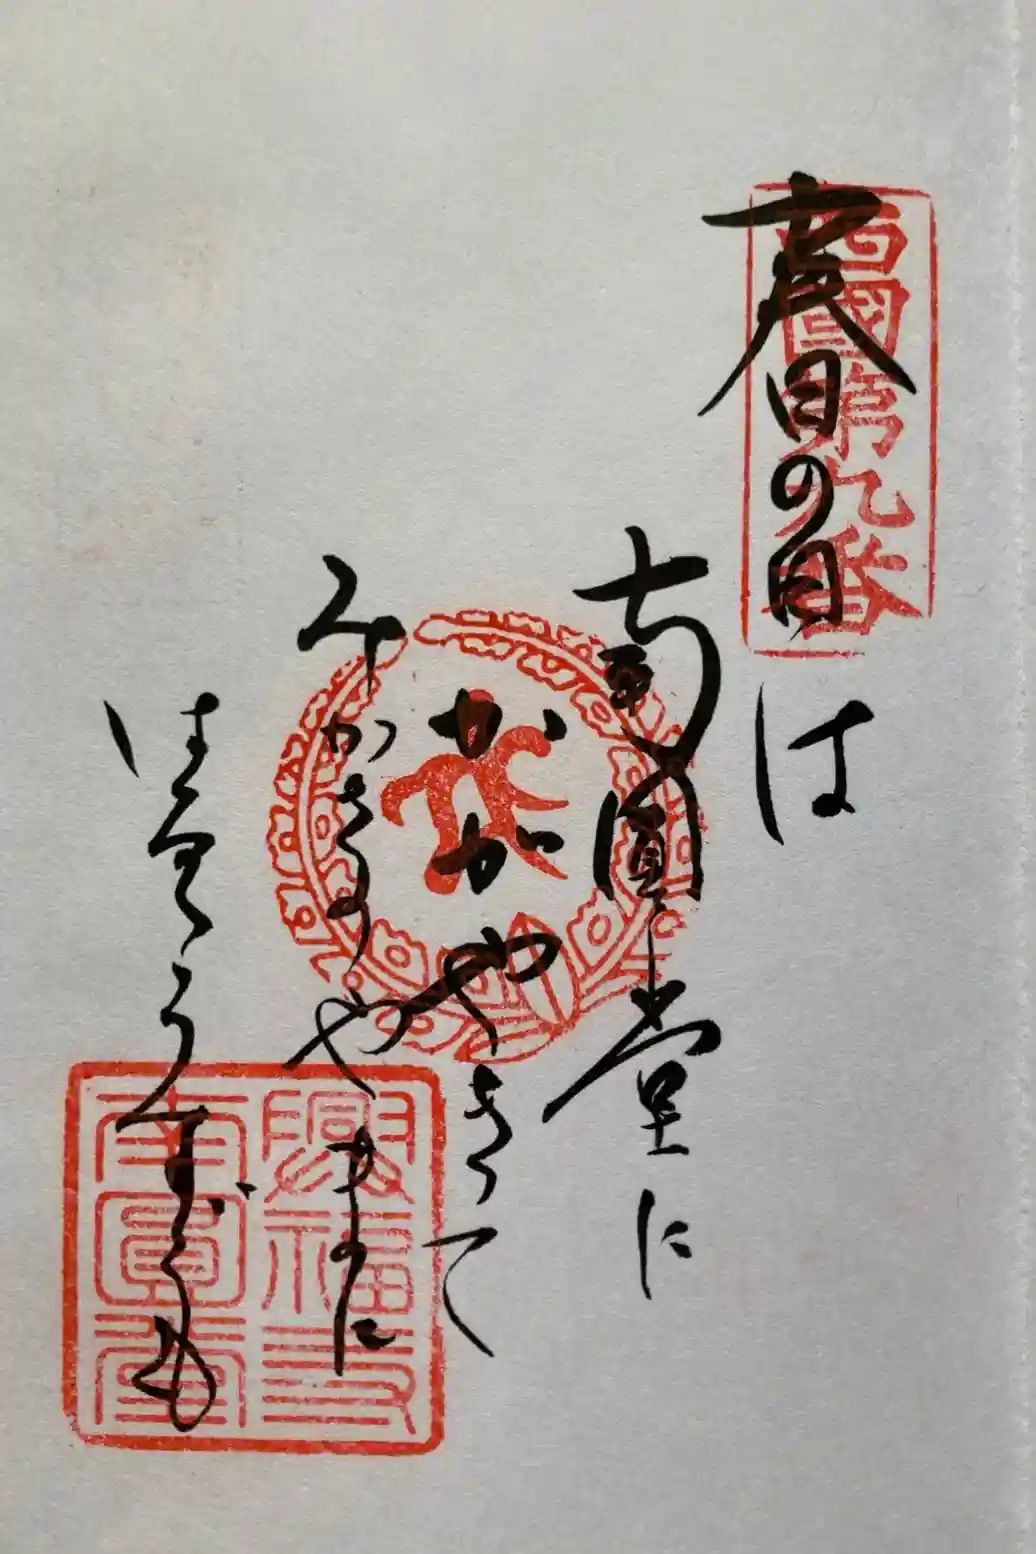 西國第九番
春日の
月は
南圓堂に
かがやきて
みかさのやまに
はるゝうす
興福寺
南圓堂